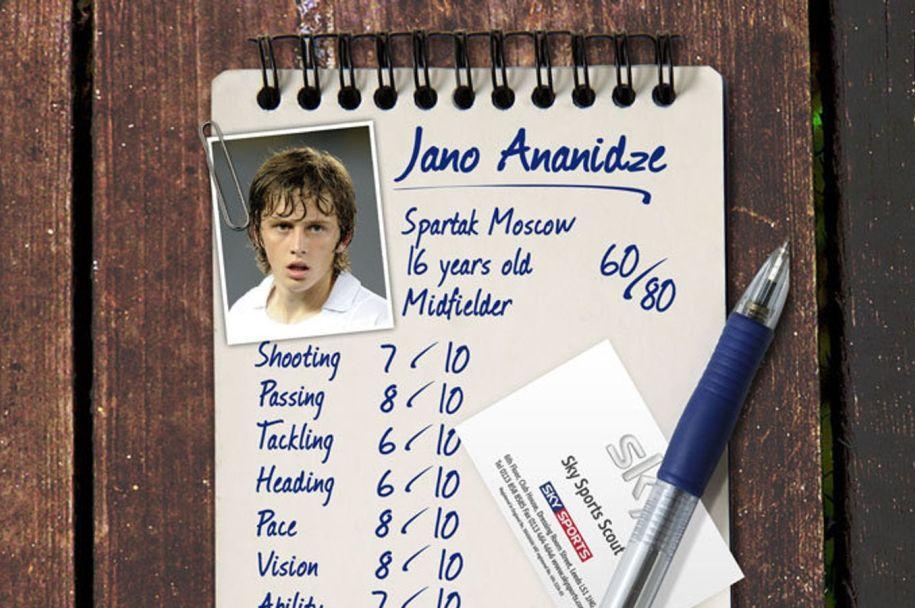 Jano Ananidze
Spartak Moscow
16 years old
60/80
Midfielder
Shooting 7/10
Passing 8/10
Tackling 6/10
Heading 6/10
Pace 8/10
Vision 8/10
Ability 7/10
sky
Sky Sports Scout
SKY SPORTS